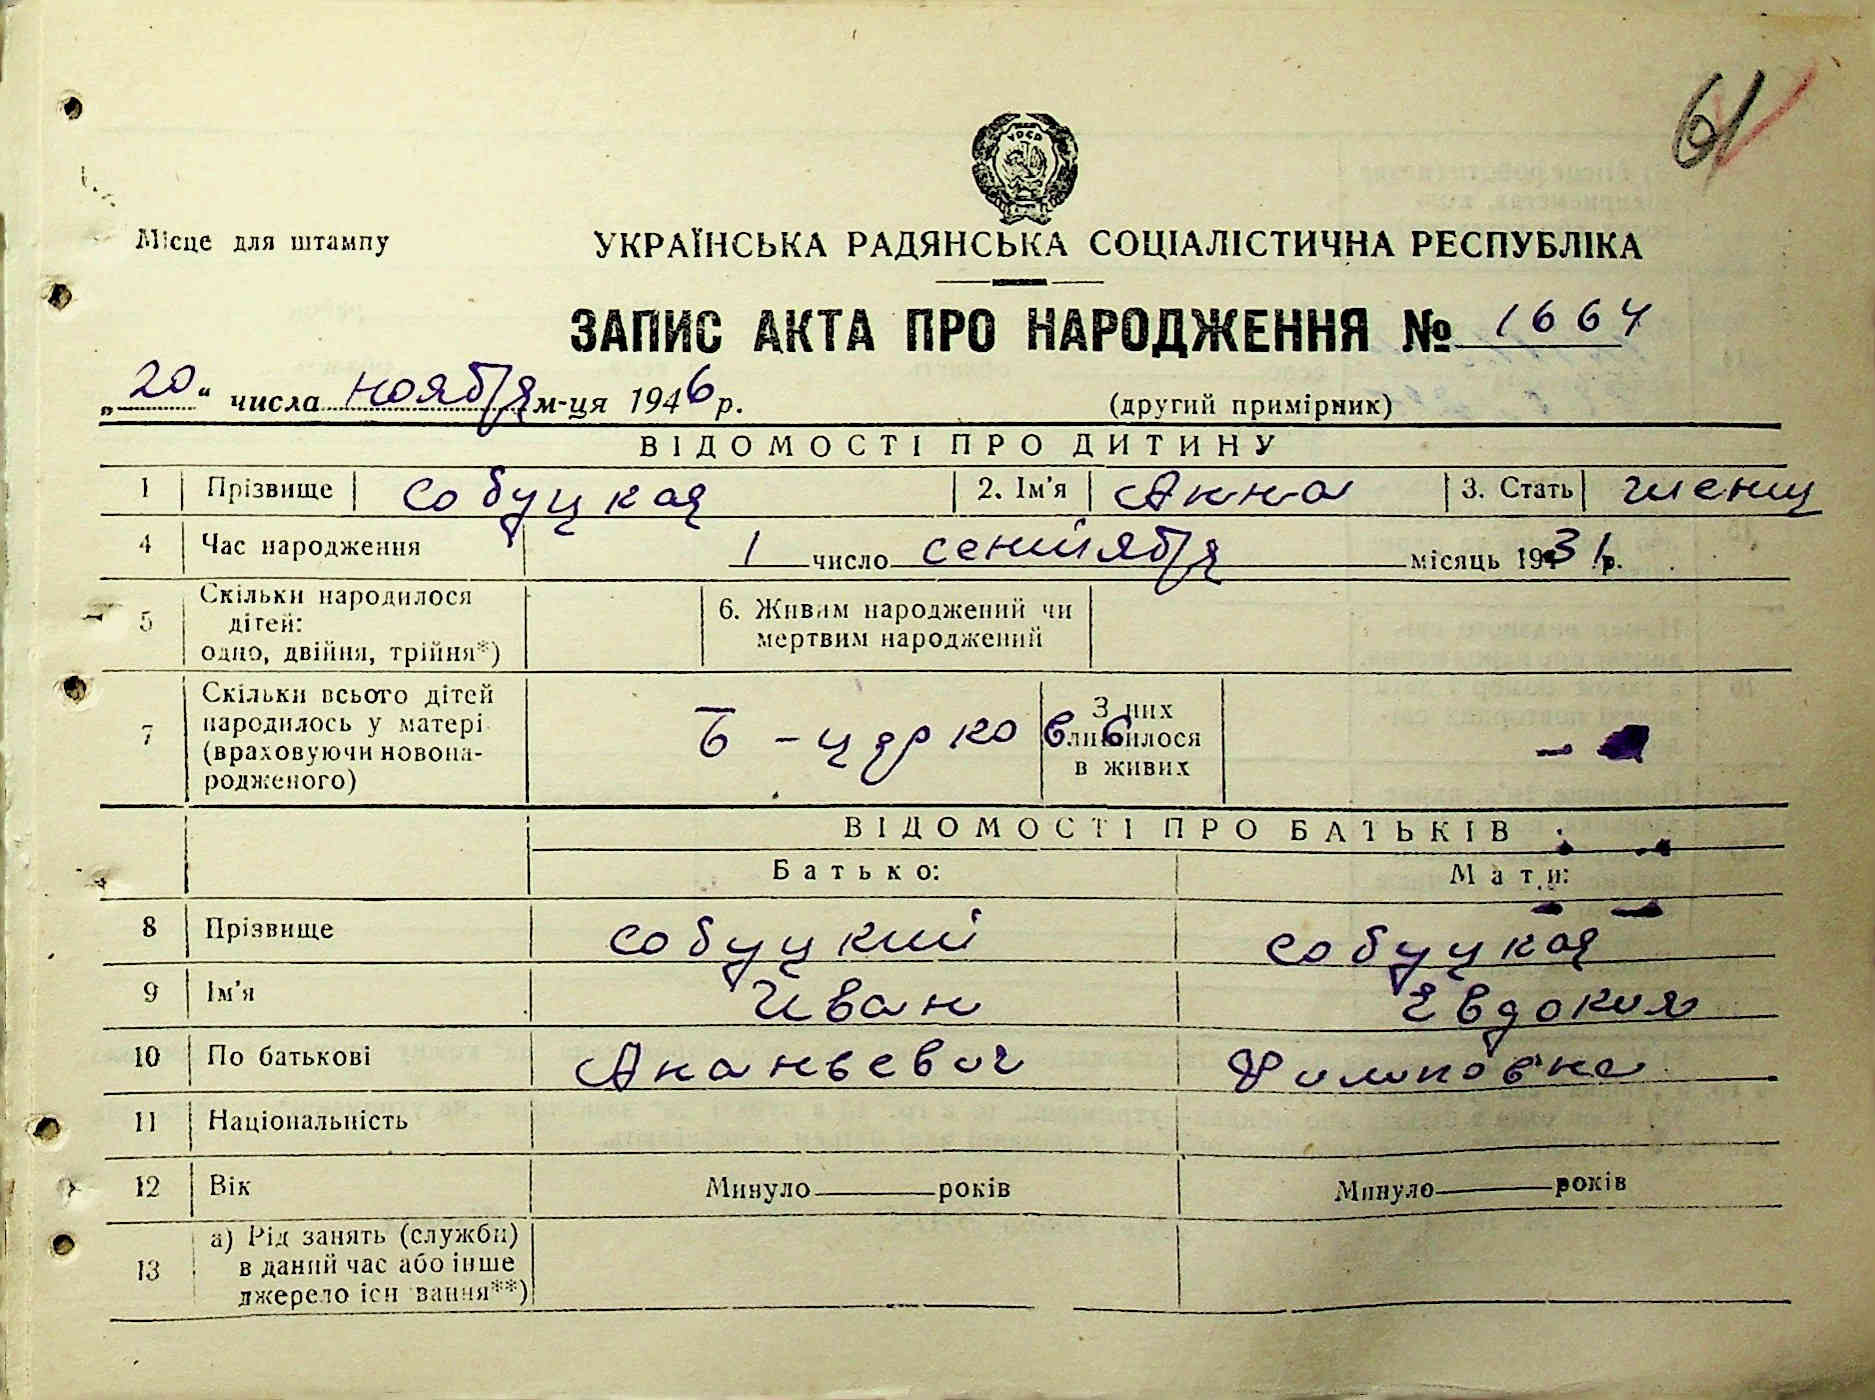 61
УРСР
Місце для штампу
УКРАЇНСЬКА РАДЯНСЬКА СОЦІАЛІСТИЧНА РЕСПУБЛІКА
ЗАПИС АКТА ПРО НАРОДЖЕННЯ № 1664
„20“ числа ноября м-ця 1946 р. (другий примірник)
ВІДОМОСТІ ПРО ДИТИНУ
1 Прізвище Собуцкая 2. Ім'я Анна 3. Стать женщ
4 Час народження 1 число сентября місяць 1931 р.
5 Скільки народилося дітей: одно, двійня, трійня*) 6. Живим народжений чи мертвим народжений
7 Скільки всього дітей народилось у матері (враховуючи новонародженого) Б - церков З них лишилося в живих -
ВІДОМОСТІ ПРО БАТЬКІВ
Батько: Мати:
8 Прізвище Собуцкий Собуцкая
9 Ім'я Иван Евдокия
10 По батькові Ананьевич Филиповна
11 Національність
12 Вік Минуло років Минуло років
13 а) Рід занять (служби) в даний час або інше джерело існування**)